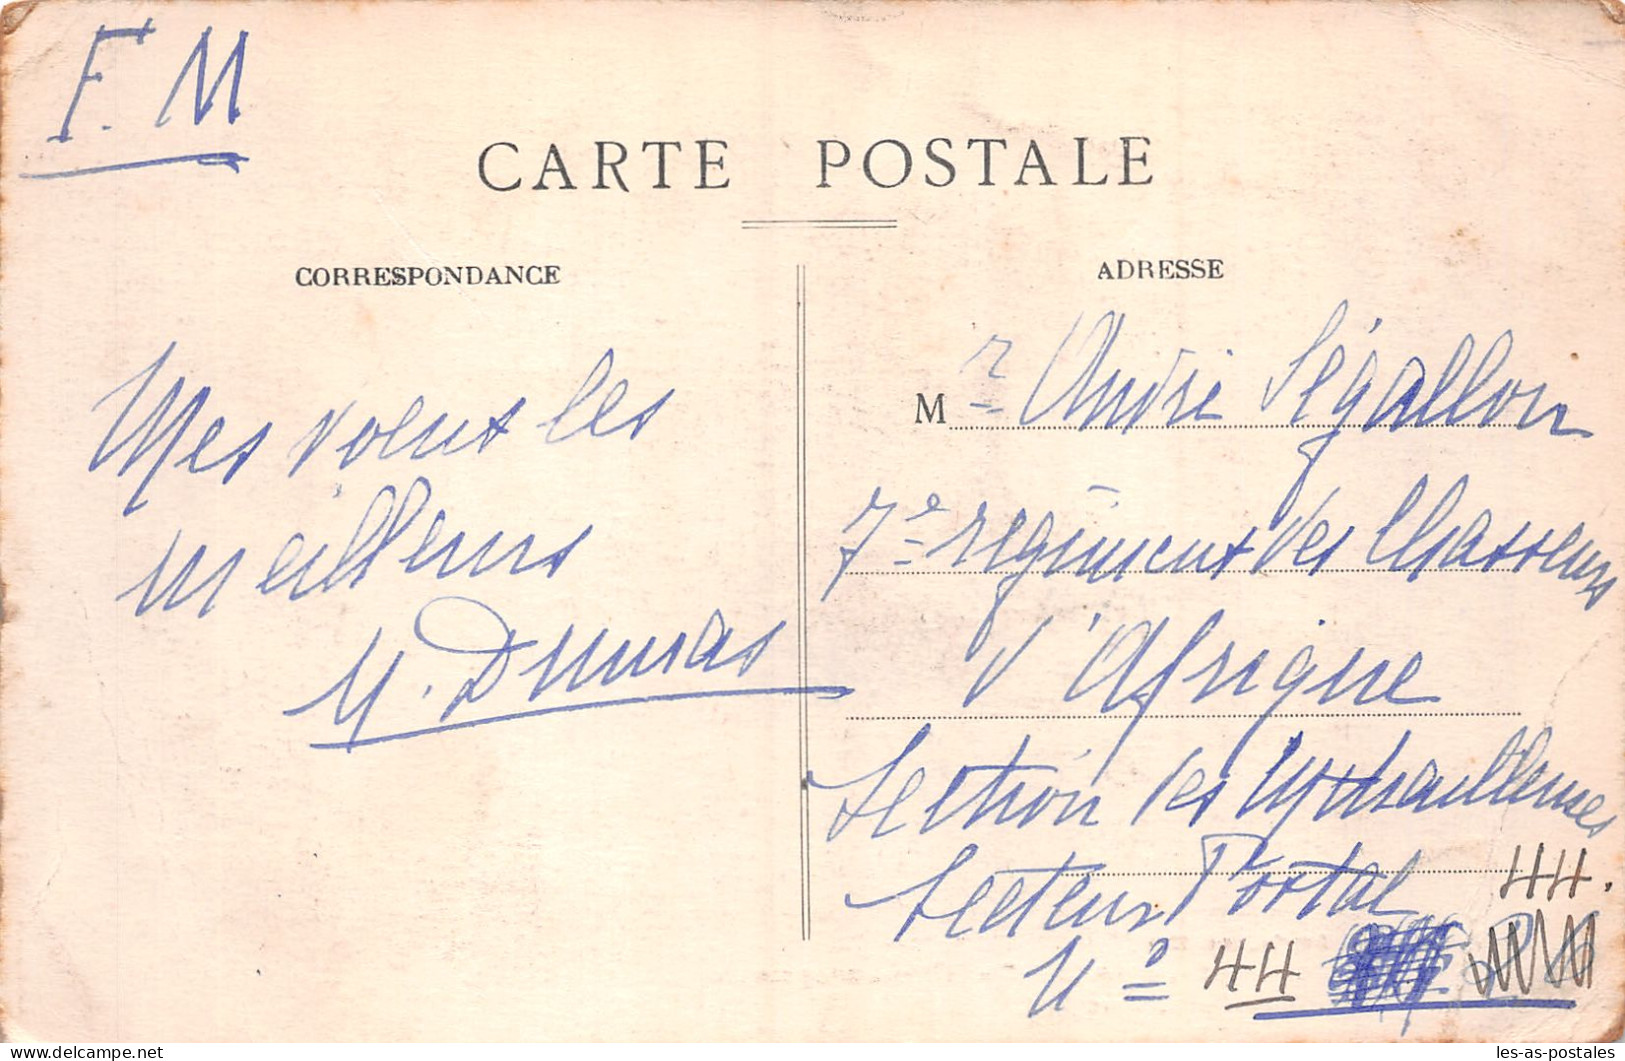 F. M
CARTE POSTALE
CORRESPONDANCE
Mes voeux les
meilleurs
M. Dumas
ADRESSE
Mr André Ségallon
7e régiment des Chasseurs
d'Afrique
Section des Mitrailleuses
Secteur Postal 44.
No 44
les-as-postales